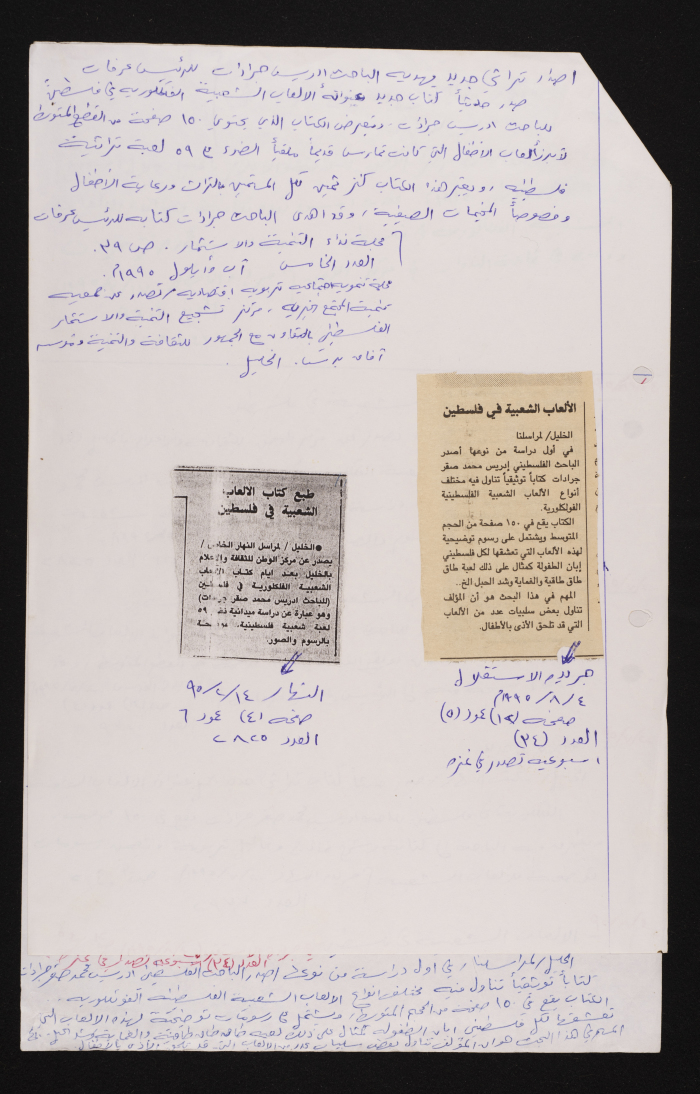 اصدار تراثي جديد يهديه الباحث ادريس جرادات للرئيس عرفات
صدر حديثاً كتاب جديد بعنوان الالعاب الشعبية الفلكلورية في فلسطين
للباحث ادريس جرادات. ويعرض الكتاب الذي يحتوي ١٥٠ صفحة من القطع المتوسط
لأبرز ألعاب الأطفال التي كانت تمارس قديماً ملقياً الضوء على ٥٩ لعبة تراثية
فلسطينية، ويعتبر هذا الكتاب كنز ثمين لكل المهتمين بالتراث ورعاية الأطفال
وخصوصاً المخيمات الصيفية، وقد اهدى الباحث جرادات كتابه للرئيس عرفات
مجلة نداء التنمية والاستثمار. ص ٣٩.
العدد الخامس آب وأيلول ١٩٩٥م.
مجلة تنموية اجتماعية تربوية اقتصادية تصدر عن جمعية
تنمية المجتمع الخيرية، مركز تشجيع التنمية والاستثمار
الفلسطيني بالتعاون مع الجمهور للثقافة والتنمية ومؤسسة
آفاق الخليل.
الألعاب الشعبية في فلسطين
الخليل/ لمراسلنا
في أول دراسة من نوعها أصدر
الباحث الفلسطيني إدريس محمد صقر
جرادات كتاباً توثيقياً تناول فيه مختلف
أنواع الألعاب الشعبية الفلسطينية
الفولكلورية.
الكتاب يقع في ١٥٠ صفحة من الحجم
المتوسط ويشتمل على رسوم توضيحية
لهذه الألعاب التي تعشقها لكل فلسطيني
إبان الطفولة كمثال على ذلك لعبة طاق
طاق طاقية والغماية وشد الحبل الخ..
المهم في هذا البحث هو أن المؤلف
تناول بعض سلبيات عدد من الألعاب
التي قد تلحق الأذى بالأطفال.
جريدة الاستقلال
٤/ ٨/ ١٩٩٥م
صفحة (١٢) عمود (٥)
العدد (٣٤)
اسبوعية تصدر في غزة
طبع كتاب الالعاب
الشعبية في فلسطين
●الخليل / لمراسل النهار الخاص /
يصدر عن مركز الوطن للثقافة والاعلام
بالخليل بعد ايام كتاب الالعاب
الشعبية الفلكلورية في فلسطين
(للباحث ادريس محمد صقر جرادات)
وهو عبارة عن دراسة ميدانية ٥٩
لعبة شعبية فلسطينية،
بالرسوم والصور.
النهار ١٤/ ٢/ ٩٥
صفحة (٤) عمود ٦
العدد ٢٨٢٥
العدد (٣٤) اسبوعية تصدر في غزة
الخليل/ لمراسلنا، في أول دراسة من نوعها اصدر الباحث الفلسطيني ادريس محمد صقر جرادات
كتاباً توثيقياً تناول فيه مختلف انواع الالعاب الشعبية الفلسطينية الفولكلورية.
الكتاب يقع في ١٥٠ صفحة من الحجم المتوسط، ويشتمل على رسومات توضيحية لهذه الالعاب التي
تعشقها لكل فلسطيني ابان الطفولة كمثال على ذلك لعبة طاق طاق طاقية والغماية وشد الحبل الخ.
المهم في هذا البحث هو ان المؤلف تناول بعض سلبيات عدد من الالعاب التي قد تلحق الأذى بالأطفال.